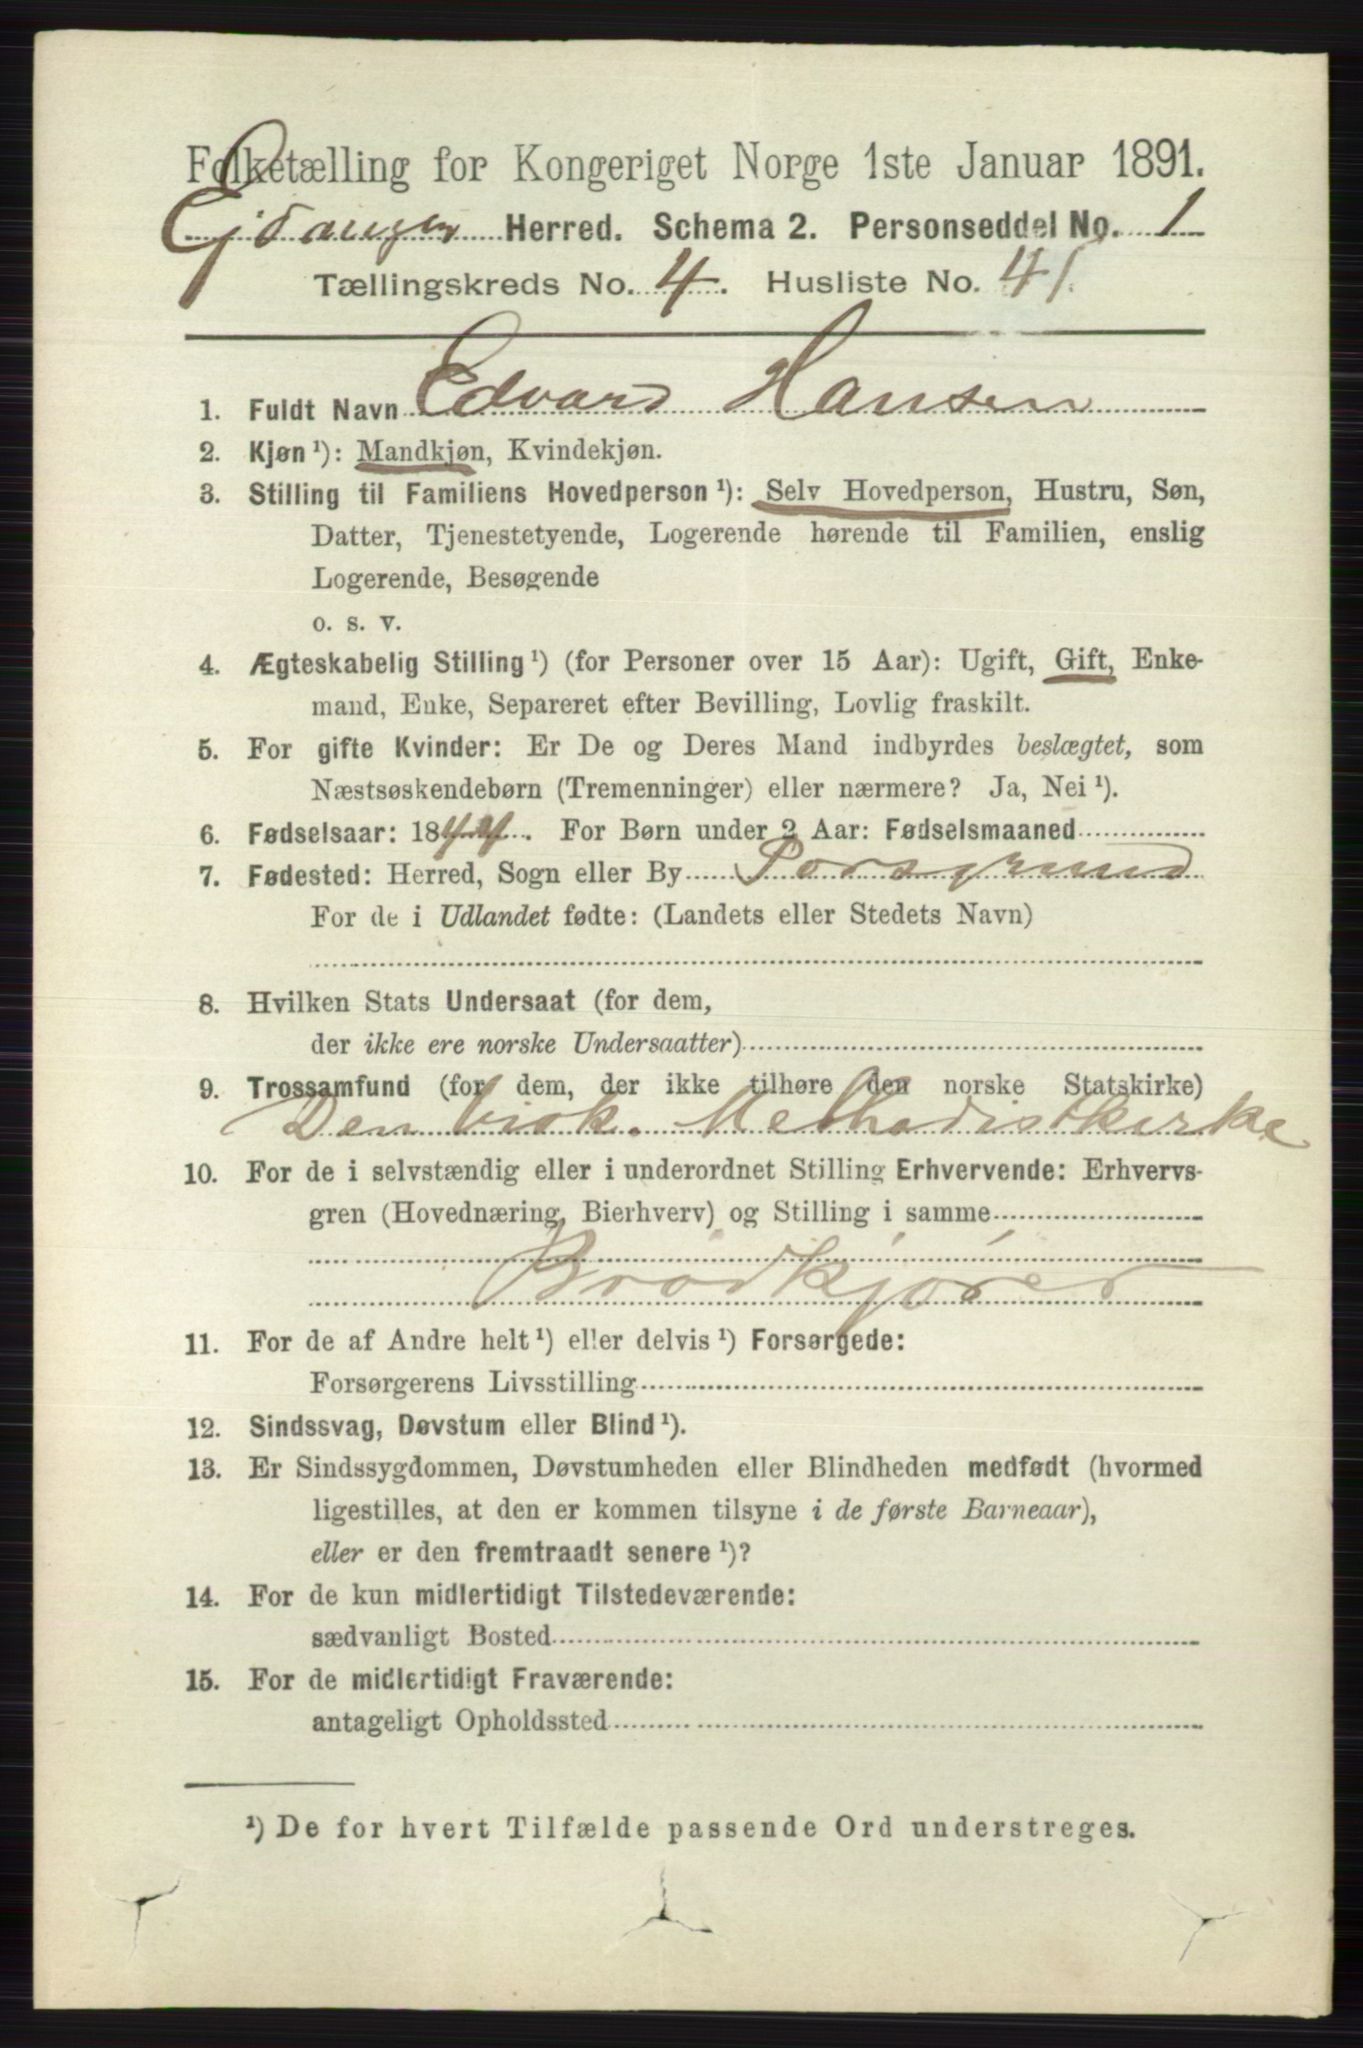 Folketælling for Kongeriget Norge 1ste Januar 1891.
Eidanger Herred. Schema 2. Personseddel No. 1
Tællingskreds No. 4. Husliste No. 41
1. Fuldt Navn Edvard Hansen
2. Kjøn ¹): Mandkjøn, Kvindekjøn.
3. Stilling til Familiens Hovedperson ¹): Selv Hovedperson, Hustru, Søn,
Datter, Tjenestetyende, Logerende hørende til Familien, enslig
Logerende, Besøgende
o. s. v.
4. Ægteskabelig Stilling ¹) (for Personer over 15 Aar): Ugift, Gift, Enke-
mand, Enke, Separeret efter Bevilling, Lovlig fraskilt.
5. For gifte Kvinder: Er De og Deres Mand indbyrdes beslægtet, som
Næstsøskendebørn (Tremenninger) eller nærmere? Ja, Nei ¹).
6. Fødselsaar: 1844. For Børn under 2 Aar: Fødselsmaaned
7. Fødested: Herred, Sogn eller By Porsgrund
For de i Udlandet fødte: (Landets eller Stedets Navn)
8. Hvilken Stats Undersaat (for dem,
der ikke ere norske Undersaatter)
9. Trossamfund (for dem, der ikke tilhøre den norske Statskirke)
Den bisk. Methodistkirke
10. For de i selvstændig eller i underordnet Stilling Erhvervende: Erhvervs-
gren (Hovednæring, Bierhverv) og Stilling i samme
Brødkjører
11. For de af Andre helt ¹) eller delvis ¹) Forsørgede:
Forsørgerens Livsstilling
12. Sindssvag, Døvstum eller Blind ¹).
13. Er Sindssygdommen, Døvstumheden eller Blindheden medfødt (hvormed
ligestilles, at den er kommen tilsyne i de første Barneaar),
eller er den fremtraadt senere ¹)?
14. For de kun midlertidigt Tilstedeværende:
sædvanligt Bosted
15. For de midlertidigt Fraværende:
antageligt Opholdssted
¹) De for hvert Tilfælde passende Ord understreges.